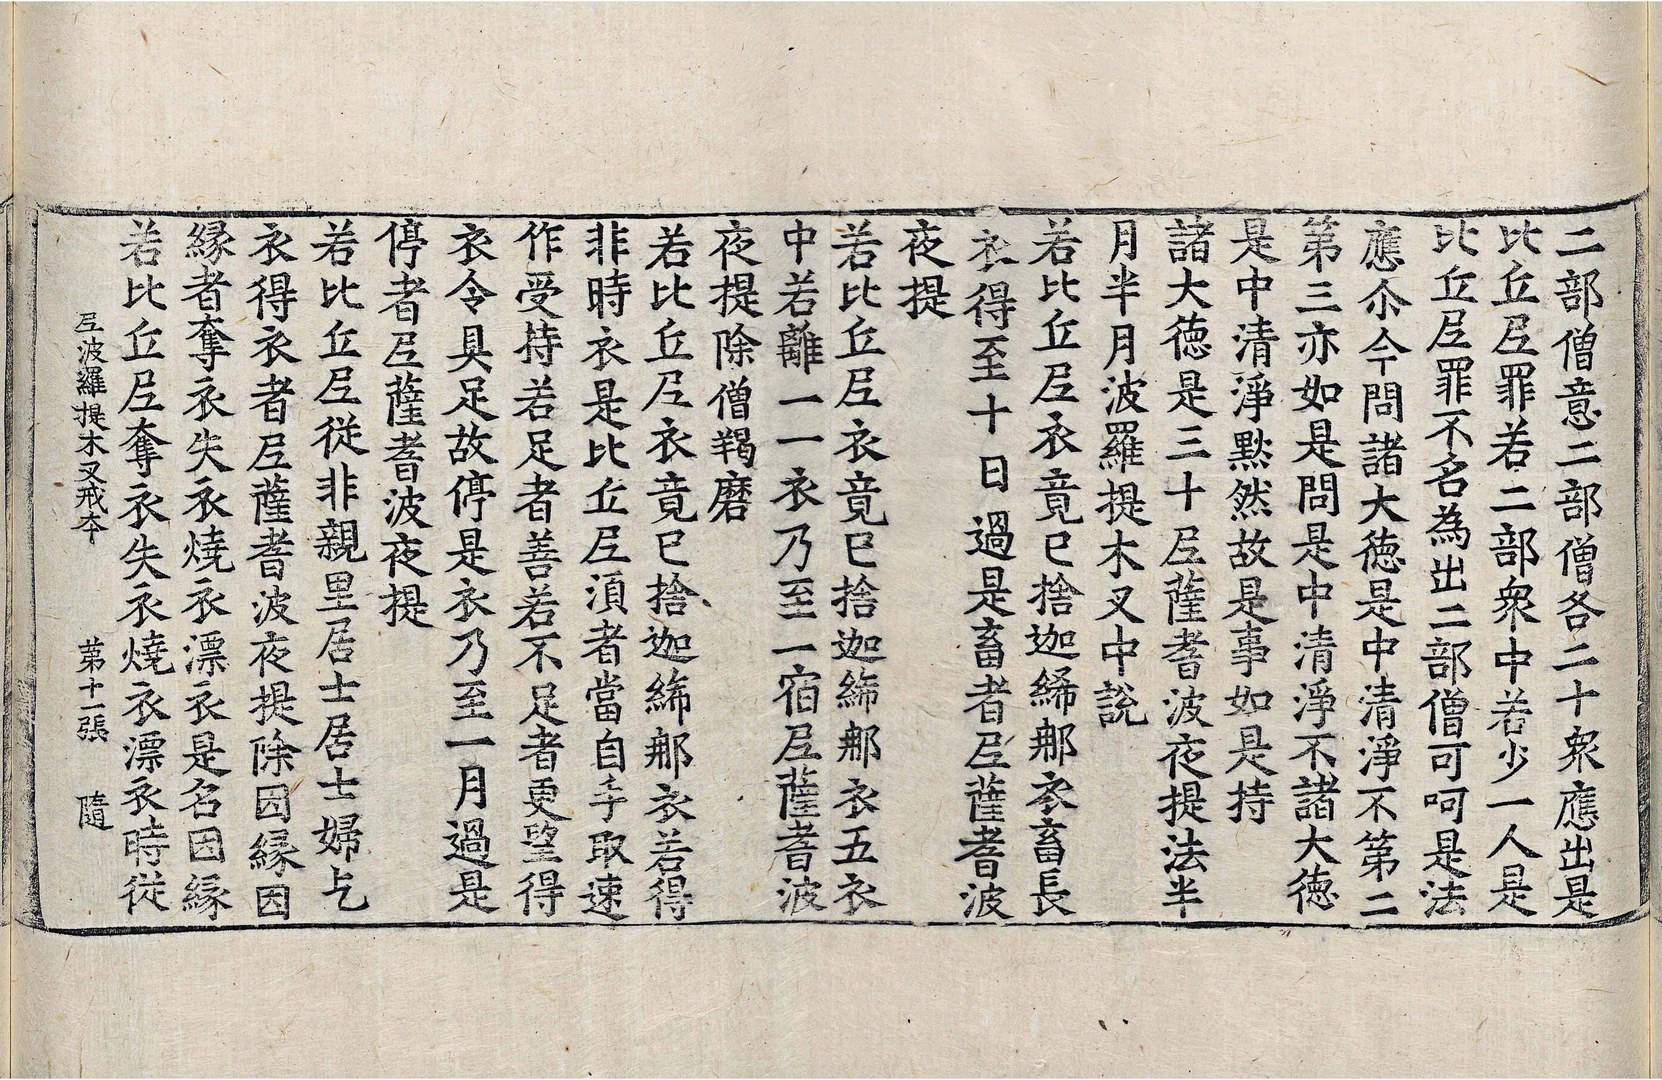 二部僧意二部僧各二十衆應出是
比丘尼罪若二部衆中若少一人是
比丘尼罪不名為出二部僧可呵是法
應尒今問諸大徳是中清淨不第二
第三亦如是問是中清淨不諸大徳
是中清淨黙然故是事如是持
諸大徳是三十尼薩耆波夜提法半
月半月波羅提木叉中說
若比丘尼衣竟已捨迦絺那衣畜長
衣得至十日過是畜者尼薩耆波
夜提
若比丘尼衣竟已捨迦絺那衣五衣
中若離一一衣乃至一宿尼薩耆波
夜提除僧羯磨
若比丘尼衣竟已捨迦絺那衣若得
非時衣是比丘尼湏者當自手取速
作受持若足者善若不足者更望得
衣令具足故停是衣乃至一月過是
停者尼薩耆波夜提
若比丘尼従非親里居士居士婦乞
衣得衣者尼薩耆波夜提除因緣因
緣者奪衣失衣燒衣漂衣是名因緣
若比丘尼奪衣失衣燒衣漂衣時従
尼波羅提木叉戒本 第十一張 隨